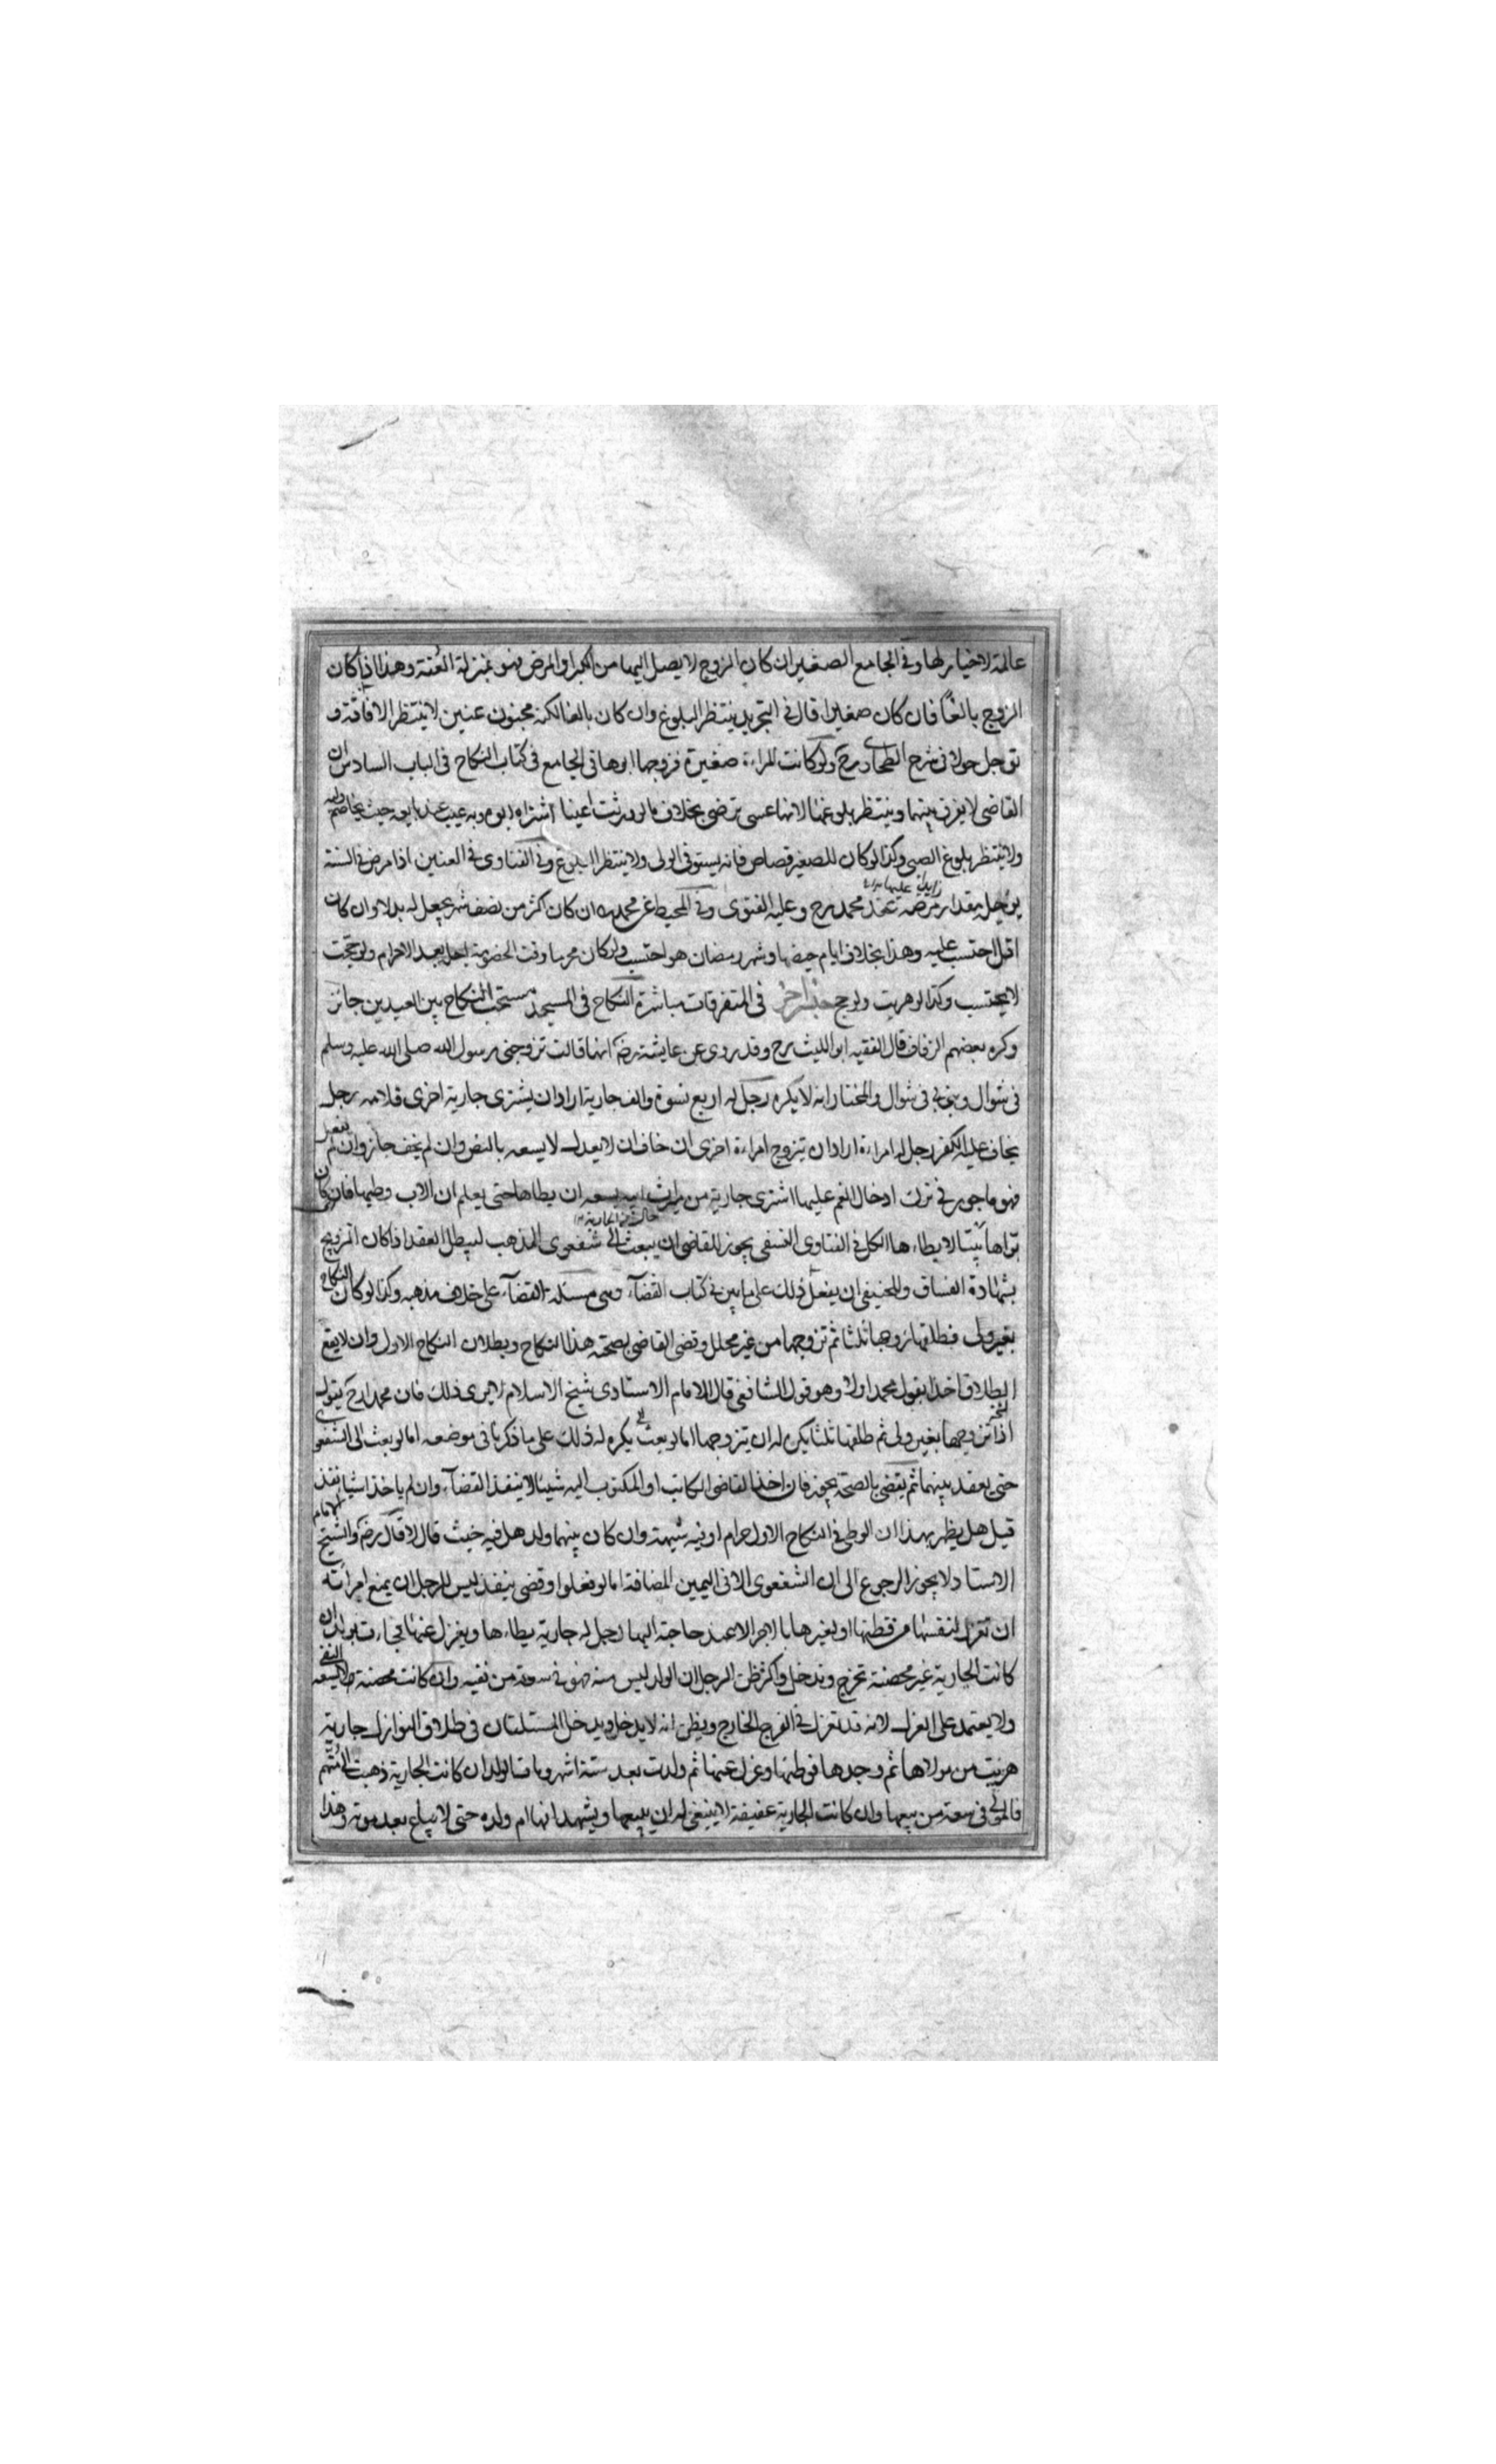 عالمة لاخيار لها وفى الجامع الصغير ان كان الزوج لا يصل اليها من الكبر او المرض فهو بمنزلة العنة وهذا اذا كان
الزوج بالغًا فان كان صغيرا قال فى التجريد ينتظر البلوغ وان كان بالغا لكنه مجنون عنين لا ينتظر الافاقة و
توجل حولا فى شرح الطحاوى رح ولو كانت المراءة صغيرة فزوجها ابوها فى الجامع فى كتاب النكاح فى الباب السادس ان
القاضى لا يفرق بينهما وينتظر بلوغها لانها عسى ترضى بخلاف ما لو ورثت اعينا اشتراه ابوه وبه عيب حيث يخاصم وليه
ولا ينتظر بلوغ الصبى وكذا لو كان للصغير قصاص فانه يستوفى الولى ولا ينتظر البلوغ وفى الفتاوى فى العنين اذا مرض فى السنة
يؤجل مقدار مرضه عند محمد رح وعليه الفتوى وفى المحيط عن محمد رح ان كان اكثر من نصف شهر يجعل له بدلا وان كان
اقل احتسب عليه وهذا بخلاف ايام حيضها وشهر رمضان هو احتسب ولو كان محرما وقت الخصومة اجل بعد الاحرام ولو حجت
لا يحتسب وكذا لو هربت ولو حج فى المتفرقات مباشرة النكاح فى المسجد مستحب النكاح بين العيدين جائز
وكره بعضهم الزفاف قال الفقيه ابو الليث رح وقد روى عن عايشة رضه انها قالت تزوجنى رسول الله صلى الله عليه وسلم
فى شوال وبنى بى فى شوال والمختار انه لا يكره رجل له اربع نسوة والف جارية اراد ان يشترى جارية اخرى فلامه رجل
يخاف عليه الكفر رجل له امراءة اراد ان يتزوج امراءة اخرى ان خاف ان لا يعدل لا يسعه بالنص وان لم يخف جاز وان لم يفعل
فهو ماجور فى ترك ادخال الغم عليها اشترى جارية من ميراث ابيه يسعه ان يطاها حتى يعلم ان الاب وطيها فان كان
بواها بيتا لا يطاءها الكل فى الفتاوى النسفى يجوز للقاضى ان يبعث الى شفعوى المذهب ليبطل العقد اذا كان التزويج
بشهادة الفساق وللحنيفى ان يفعل ذلك على ما بين فى كتاب القضآء وهى مسئلة القضآء على خلاف مذهبه وكذا لو كان النكاح
بغير ولى فطلقها زوجها ثلثا ثم تزوجها من غير محلل وقضى القاضى بصحة هذا النكاح وبطلان النكاح الاول وان لا يقع
الطلاق اخذا بقول محمد اولا وهو قول الشافعى قال الامام الاستادى شيخ الاسلام لا يرى ذلك فان محمدا رح يقول
اذا تزوجها بغير ولى ثم طلقها ثلثا يكره له ان يتزوجها اما لو بعث يكره له ذلك على ما ذكرنا فى موضعه اما لو بعث الى الشفعوى
حتى يعقد بينهما ثم يقضى بالصحة يجوز فان اخذ القاضى الكاتب او المكتوب اليه شيئا لا ينفذ القضآء وان لم ياخذا شيا نفذ
قيل هل يظهر بهذا ان الوطى فى النكاح الاول حرام او فيه شبهة وان كان بينهما ولد هل فيه خبث قال لا قال رضه والشيخ الامام
الاستاد لا يجوز الرجوع الى ان الشفعوى الا فى اليمين المضافة اما لو فعلوا وقضى ينفذ ليس للرجل ان يمنع امرأته
ان تغزل لنفسها من قطنها او لغيرها بالاجر الا عند حاجة اليها رجل له جارية يطاءها ويعزل عنها فجاءت بولد ان
كانت الجارية غير محصنة تخرج وتدخل واكثر ظن الرجل ان الولد ليس منه فهو فى سعة من نفيه وان كانت محصنة لا يسعه النفى
ولا يعتمد على العزل لانه قد تعزل فى الفرج الخارج ويظن انه لا يدخل ويدخل المسئلتان فى طلاق النوازل جارية
هربت من مولاها ثم وجدها فوطئها وعزل عنها ثم ولدت بعد ستة اشهر ومات الولد ان كانت الجارية ذهبت الى متهم
فالمولى فى سعة من بيعها وان كانت الجارية عفيفة لا ينبغى له ان يبيعها ويشهد انها ام ولده حتى لا يباع بعد موته وهذا